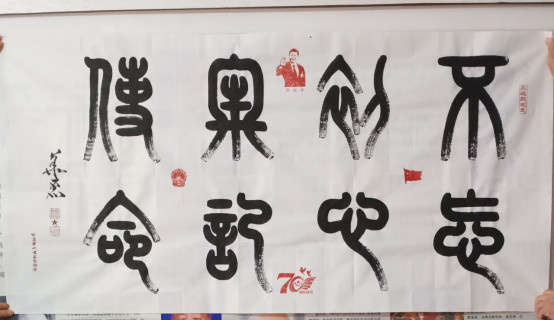 不忘
初心
牢記
使命
70